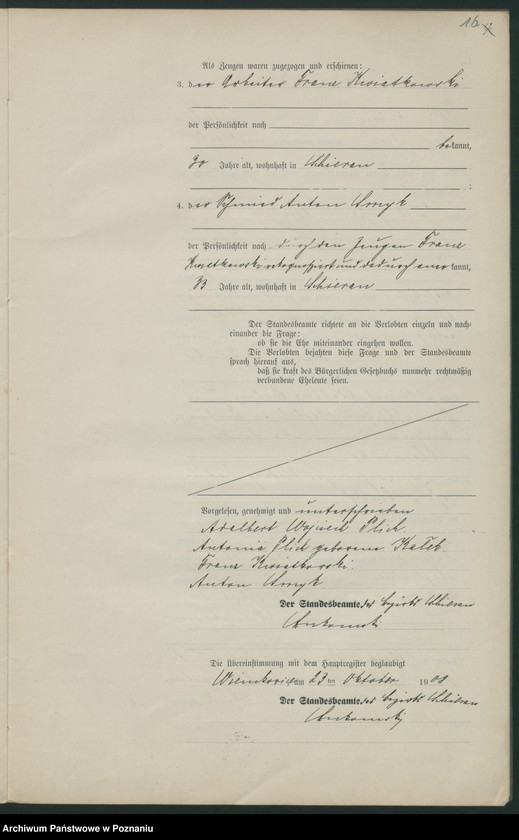 16
Als Zeugen waren zugezogen und erschienen:
3. der Arbeiter Franz Kwiatkowski
der Persönlichkeit nach
bekannt,
30 Jahre alt, wohnhaft in
;
4. der Schmied Anton Smyk
der Persönlichkeit nach durch den Zeugen Franz
Kwiatkowski rekognosziert und dadurch anerkannt,
33 Jahre alt, wohnhaft in
Der Standesbeamte richtete an die Verlobten einzeln und nach-
einander die Frage:
ob sie die Ehe miteinander eingehen wollen.
Die Verlobten bejahten diese Frage und der Standesbeamte
sprach hierauf aus,
daß sie kraft des Bürgerlichen Gesetzbuchs nunmehr rechtmäßig
verbundene Eheleute seien.
Vorgelesen, genehmigt und unterschrieben
Adalbert Wojciech Plich
Antonie Plich geborene
Franz Kwiatkowski.
Anton Smyk
Der Standesbeamte des Bezirks
Die Übereinstimmung mit dem Hauptregister beglaubigt
am 23 ten Oktober 1901
Der Standesbeamte des Bezirks
Archiwum Państwowe w Poznaniu